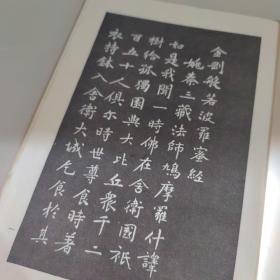 金剛般若波羅蜜經
姚秦三藏法師鳩摩羅什譯
如是我聞一時佛在舍衛國祇
樹給孤獨園與大比丘衆千二
百五十人俱尓時世尊食時著
衣持鉢入舍衛大城乞食於其